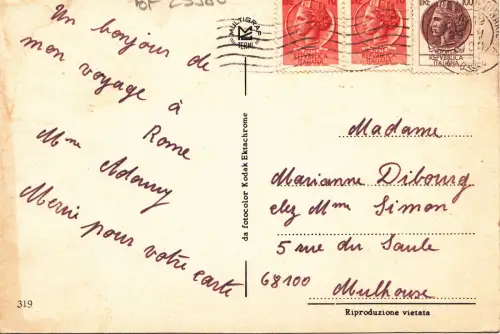 Un bonjour de
mon voyage à
Rome
Mme Adamy
Merci pour votre carte
319
MULTIGRAF
TERNI
da fotocolor Kodak Ektachrome
LIRE 100
REPVBBLICA
ITALIANA
Madame
Marianne Dibourg
chez Mme Simon
5 rue du Saule
68100
Mulhouse
Riproduzione vietata